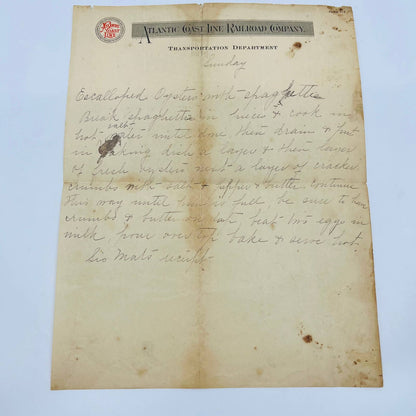 ATLANTIC COAST LINE RAILROAD COMPANY.
TRANSPORTATION DEPARTMENT
Sunday
Escalloped Oysters with spaghettie
Break spaghettie in pieces & cook in
hot salt water until done, then drain & put
in baking dish a layer & then layer
of fresh oysters next a layer of cracker
crumbs with salt & pepper & butter. Continue
this way until is full, be sure to have
crumbs & butter on last, beat two eggs in
milk, pour over top bake & serve hot.
Sis Mat's receipt